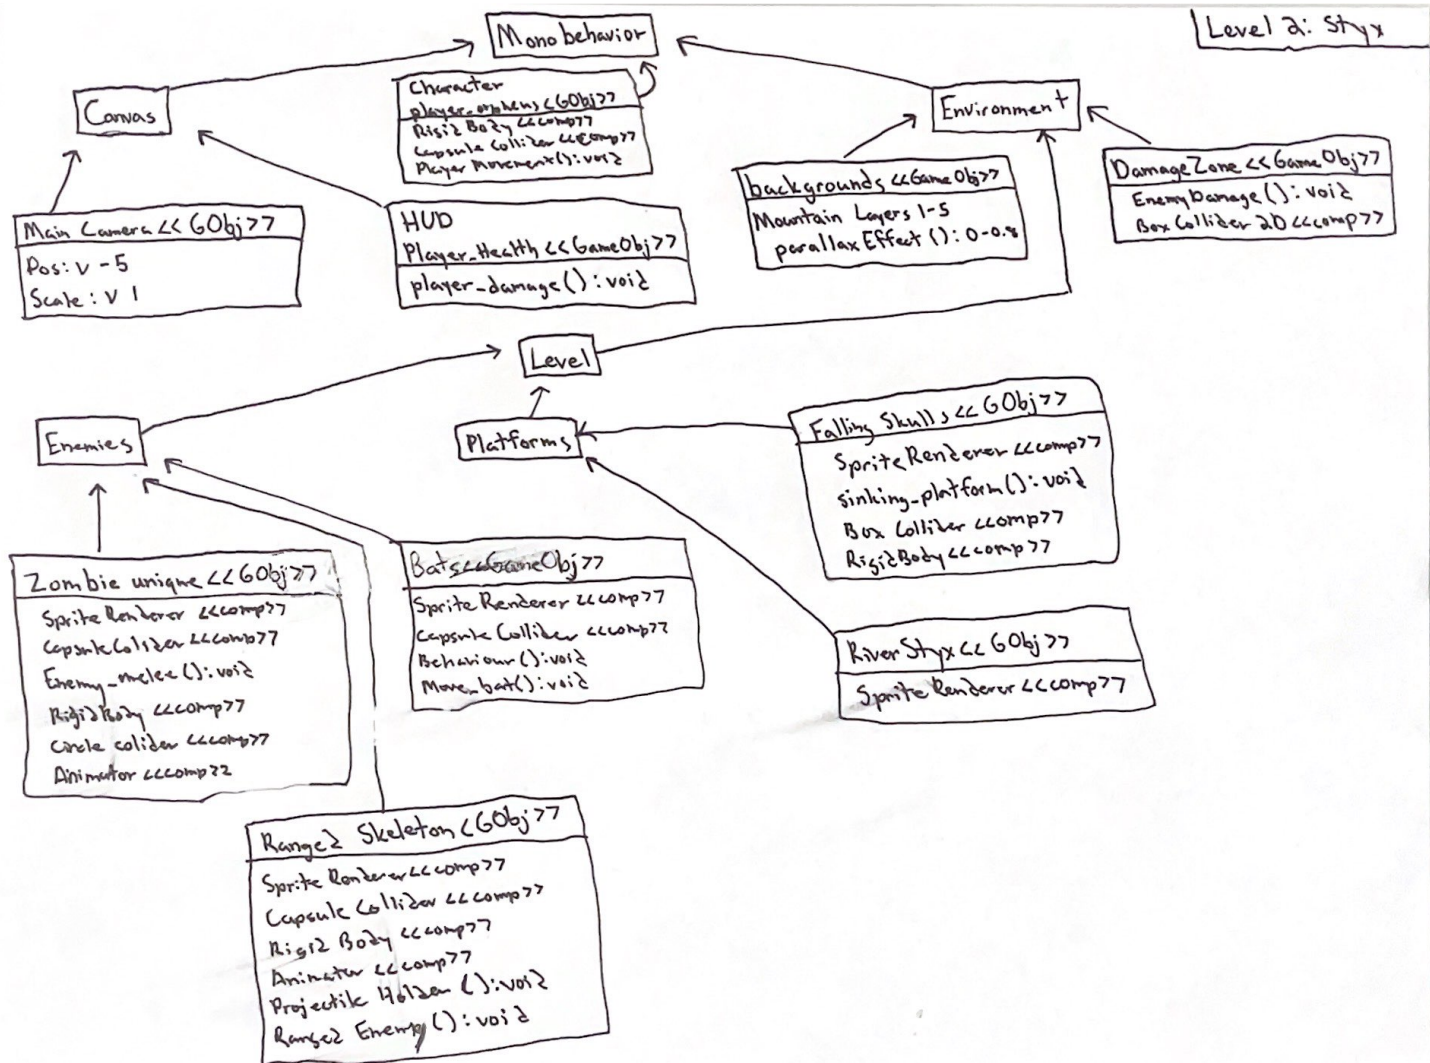 Level 2: Styx
Monobehavior
Canvas
Character
player_orpheus <GObj>>
Rigid Body <<comp>>
Capsule Collider <<comp>>
Player Movement(): void
Environment
Main Camera << GObj>>
Pos: V -5
Scale: V 1
HUD
Player_Health <<GameObj>>
player_damage(): void
backgrounds <<GameObj>>
Mountain Layers 1-5
parallaxEffect(): 0-0.8
DamageZone <<GameObj>>
EnemyDamage(): void
Box Collider 2D <<comp>>
Level
Enemies
Platforms
Falling Skulls << GObj>>
SpriteRenderer <<comp>>
sinking_platform(): void
Box Collider <<comp>>
RigidBody <<comp>>
Zombie unique <<GObj>>
SpriteRenderer <<comp>>
Capsule Colider <<comp>>
Enemy_melee(): void
RigidBody <<comp>>
Circle colider <<comp>>
Animator <<comp>>
Bats<<GameObj>>
Sprite Renderer <<comp>>
Capsule Collider <<comp>>
Behaviour(): void
Move_bat(): void
River Styx << GObj>>
Sprite Renderer <<comp>>
Ranged Skeleton <GObj>>
Sprite Renderer<<comp>>
Capsule Collider <<comp>>
Rigid Body <<comp>>
Animator <<comp>>
Projectile Holder (): void
Ranged Enemy (): void